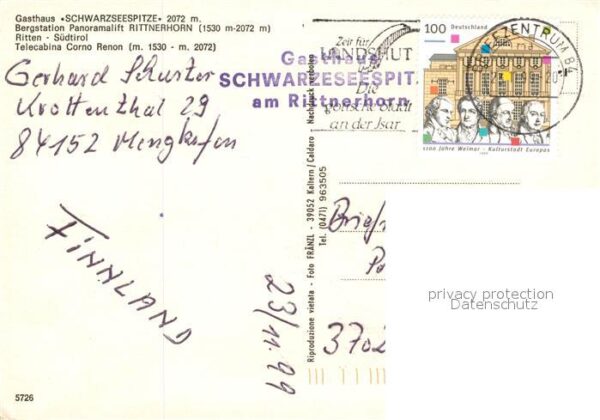 Gasthaus «SCHWARZSEESPITZE» 2072 m.
Bergstation Panoramalift RITTNERHORN (1530 m-2072 m)
Ritten - Südtirol
Telecabina Corno Renon (m. 1530 - m. 2072)
Gerhard Schuster
Krottenthal 29
84152 Mengkofen
FINNLAND
5726
Gasthaus
SCHWARZESEESPIT
am Rittnerhorn
Zeit für
LANDSHUT
Die
gotische Stadt
an der Isar
100 Deutschland
1100 Jahre Weimar - Kulturstadt Europas
Riproduzione vietata - Foto FRÄNZL - 39052 Kaltern / Caldaro - Nachdruck verboten
Tel. (0471) 963505
23/11.99
Brief
Po
3702
privacy protection
Datenschutz